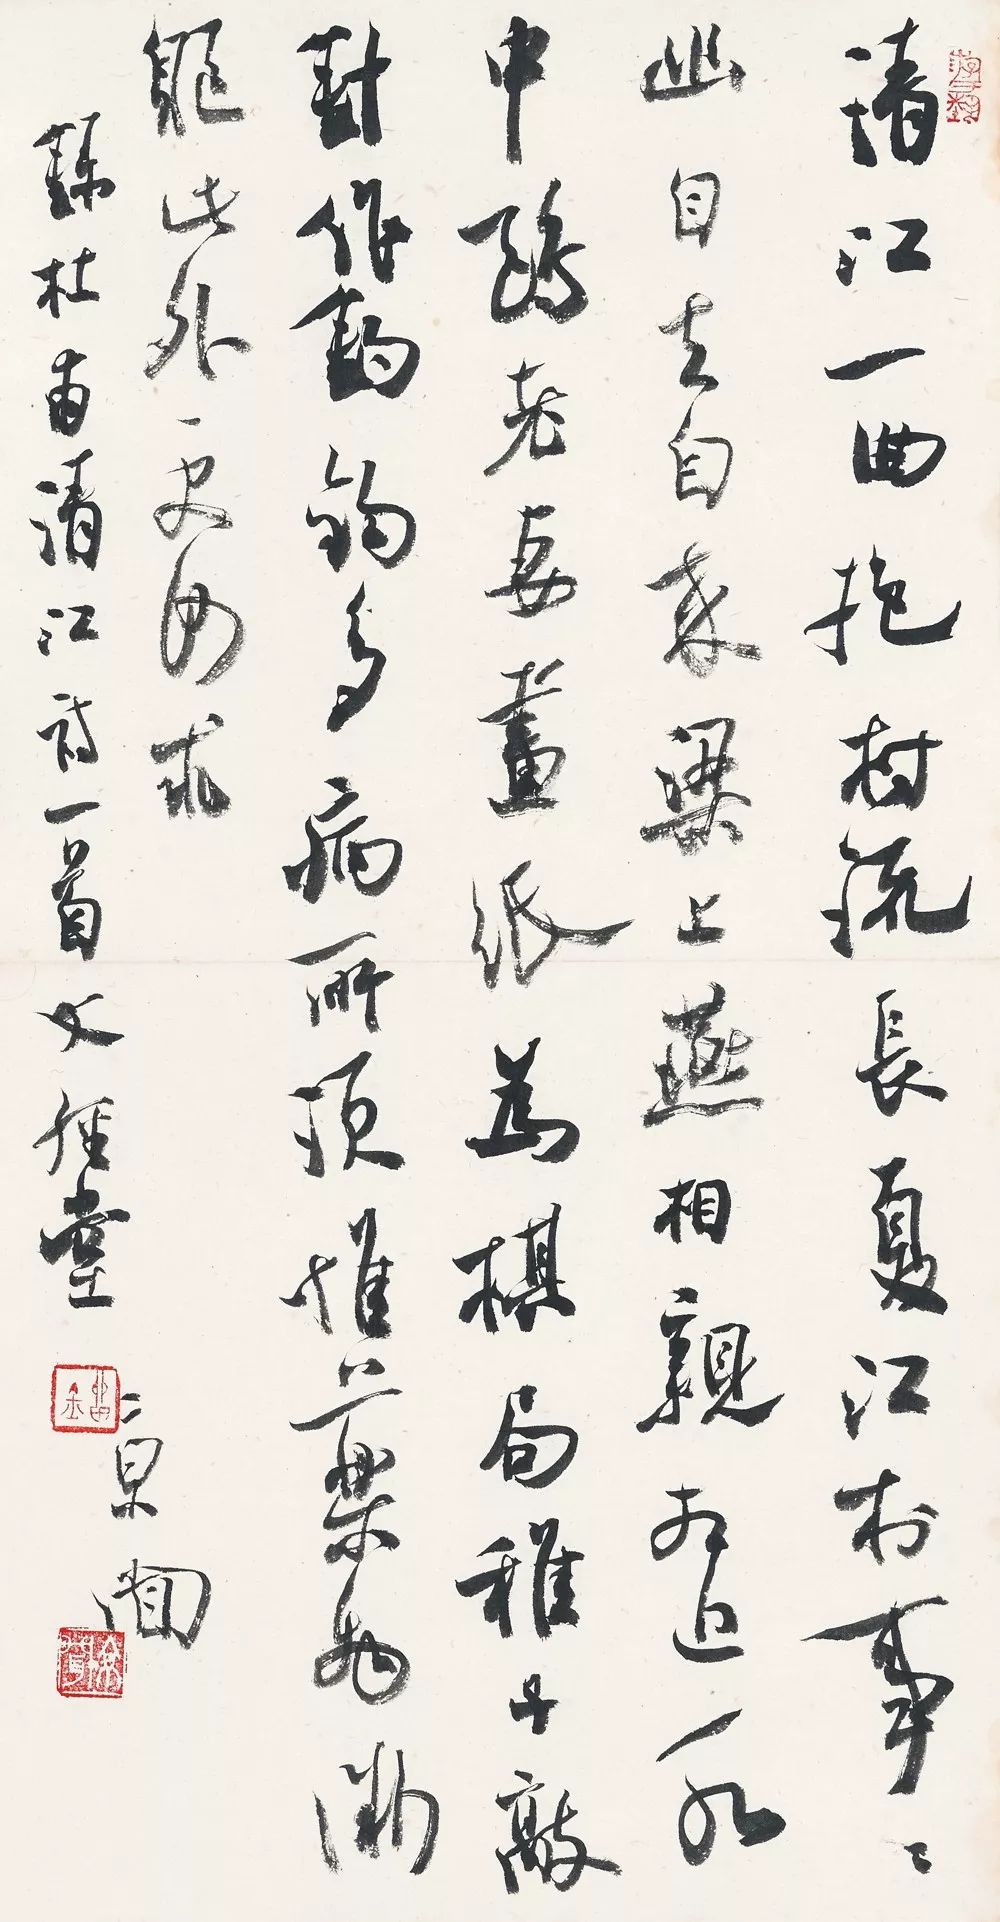 清江一曲抱村流長夏江村事〻
幽自去自來梁上燕相親相近水
中鷗老妻畫紙為棋局稚子敲
針作釣鉤多病所須惟藥物微
軀此外更何求
錄杜甫清江詩一首